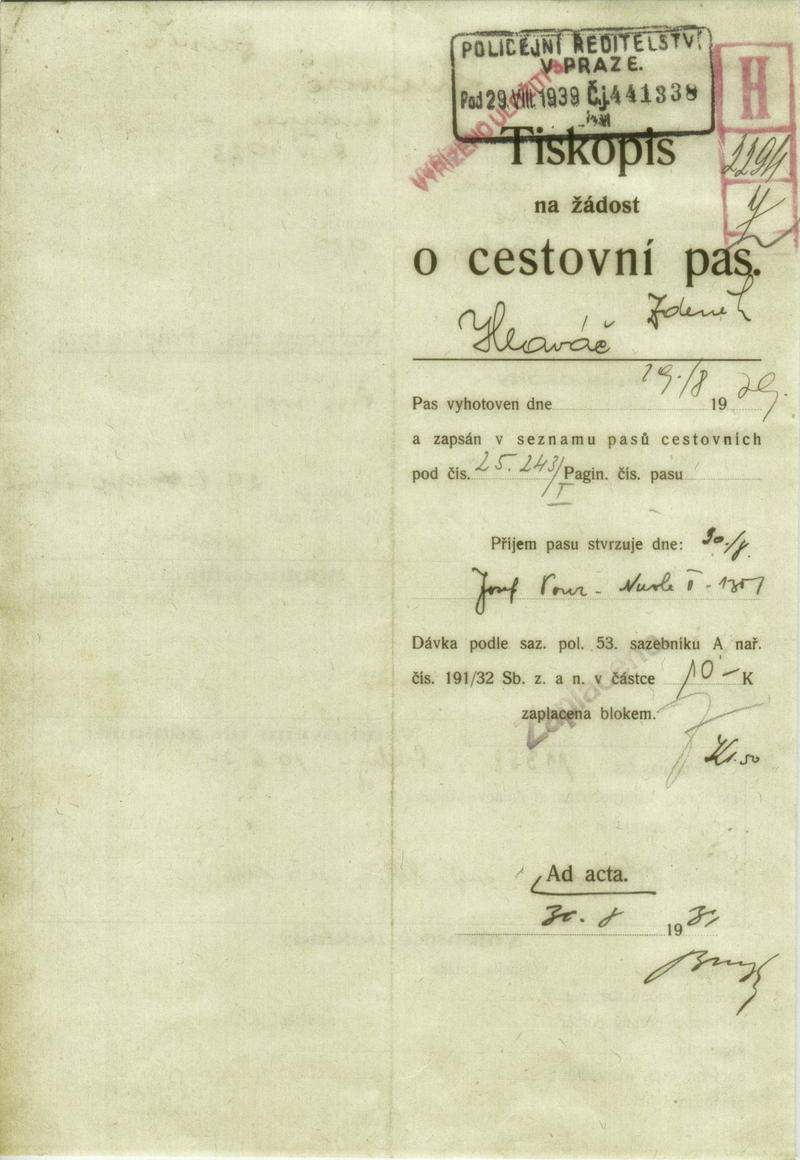 POLICEJNÍ ŘEDITELSTVÍ
V PRAZE.
Pod 29.VIII.1939 Čj. 441338
H
2294
Tiskopis
na žádost
o cestovní pas.
Zdeněk
Hlaváč
Pas vyhotoven dne 29./8 1939.
a zapsán v seznamu pasů cestovních
pod čís. 25.243/I Pagin. čís. pasu
Příjem pasu stvrzuje dne: 30./8.
Josef - Nusle II -
Dávka podle saz. pol. 53. sazebníku A nař.
čís. 191/32 Sb. z. a n. v částce 10 — K
zaplacena blokem.
Zaplaceno
Ad acta.
30. 8 1939